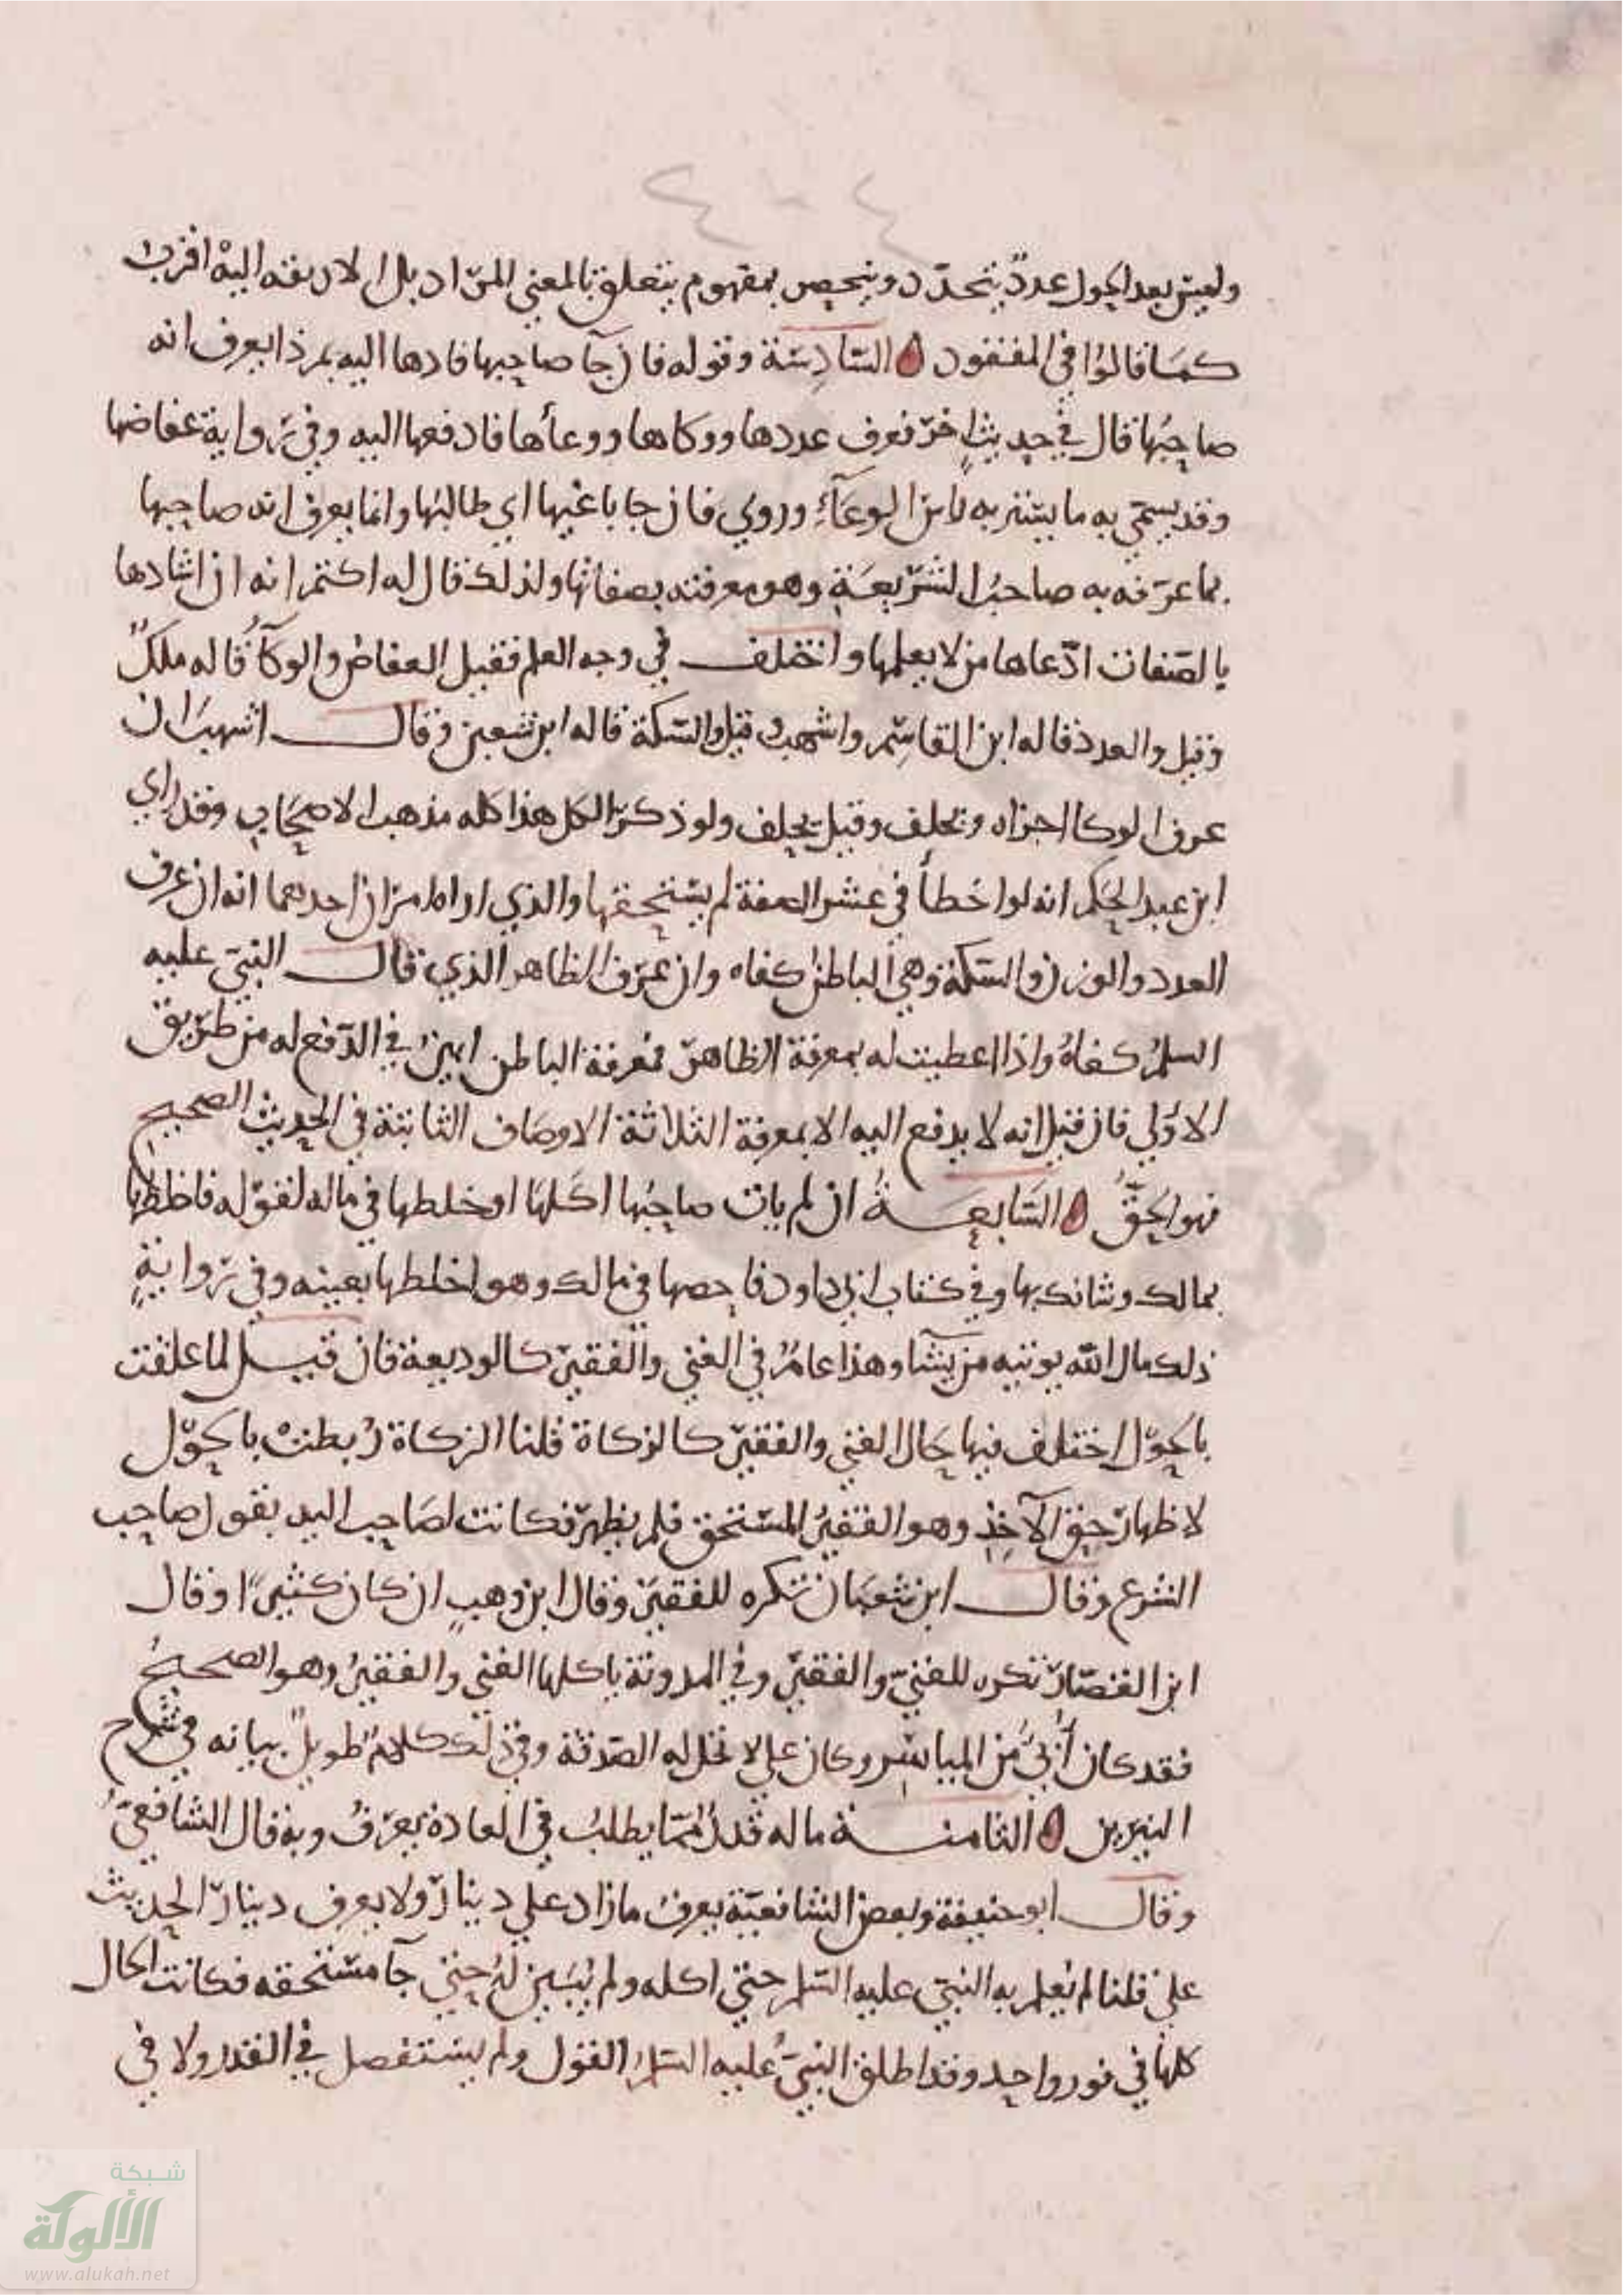 ٤ - ٤
وليس بعد الحول عدد يتحدد وينحصر بمفهوم يتعلق بالمعنى المراد بل الا لا ريقته اليه اقرب
كما قالوا في المفقود السادسة وقوله فان جآ صاحبها فادها اليه بمر ذا يعرف انه
صاحبها قال في حديث اخر فعرف عددها ووكاها ووعأها فادفعها اليه وفي رواية عفاصها
وقد يسمى به ما يستتر به راس الوعآء وروي فان جا باغيها اي طالبها وانما يعرف انه صاحبها
بما عرفه به صاحب الشريعة وهو معرفته بصفاتها ولذلك قال له اكتم انه ان اشادها
بالصفات ادعاها من لا يعلمها واختلف في وجه العلم فقيل العفاص والوكآ قاله ملك
وقيل والعدد قاله ابن القاسم واشهب وقيل والسكة قاله ابن شعبن وقال اشهب ان
عرف الوكا اجزاه ويحلف وقيل يحلف ولو ذكر الكل هذا كله مذهب الاصحاب وقد راي
ابن عبد الحكم انه لو اخطأ في عشر الصفة لم يستحقها والذي اراه امران احدهما انه ان عرف
العدد والوزن والسكة وهي الباطن كفاه وان عرف الظاهر الذي قال النبي عليه
السلم كفاه واذا اعطيت له بمعرفة الظاهر فمعرفة الباطن ابين في الدفع له من طريق
الاولي فان قيل انه لا يدفع اليه الا بمعرفة الثلاثة الاوصاف الثابتة في الحديث الصحيح
فهو الحق السابعة ان لم يات صاحبها اكلها او خلطها في ماله لقوله فاخلطها
بمالك وشانك بها وفي كتاب ابي داود فاحصها في مالك وهو اخلطها بعينه وفي رواية
ذلك مال الله يوتيه من يشآ وهذا عام في الغني والفقير كالوديعة فان قيل لما علقت
بالحول اختلف فيها حال الغني والفقير كالزكاة قلنا الزكاة ربطت بالحول
لاظهار حق الآخذ وهو الفقير المستحق فلم يظهر فكانت لصاحب اليد بقول صاحب
الشرع وقال ابن شعبان تكره للفقير وقال ابن وهب ان كان كثيرا وقال
ابن القصار تكره للغني والفقير وفي المدونة ياكلها الغني والفقير وهو الصحيح
فقد كان أبي من المياسر وكان علي لا تحل له الصدقة وفي ذلك كلام طويل بيانه في شرح
النيرين الثامنة ما له قدر مما يطلب في العادة يعرف وبه قال الشافعي
وقال ابو حنيفة وبعض الشافعية يعرف ما زاد علي دينار ولا يعرف دينار الحديث
علي قلنا لم يعلم به النبي عليه السلم حتي اكله ولم يبين له حتي جآ مستحقه فكانت الحال
كلها في فور واحد وقد اطلق النبي عليه السلم القول ولم يستفصل في القدر ولا في
شبكة
الألوكة
www.alukah.net